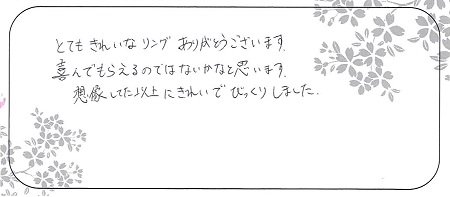 とてもきれいなリングありがとうございます.
喜んでもらえるのではないかなと思います.
想像してた以上にきれいでびっくりしました.